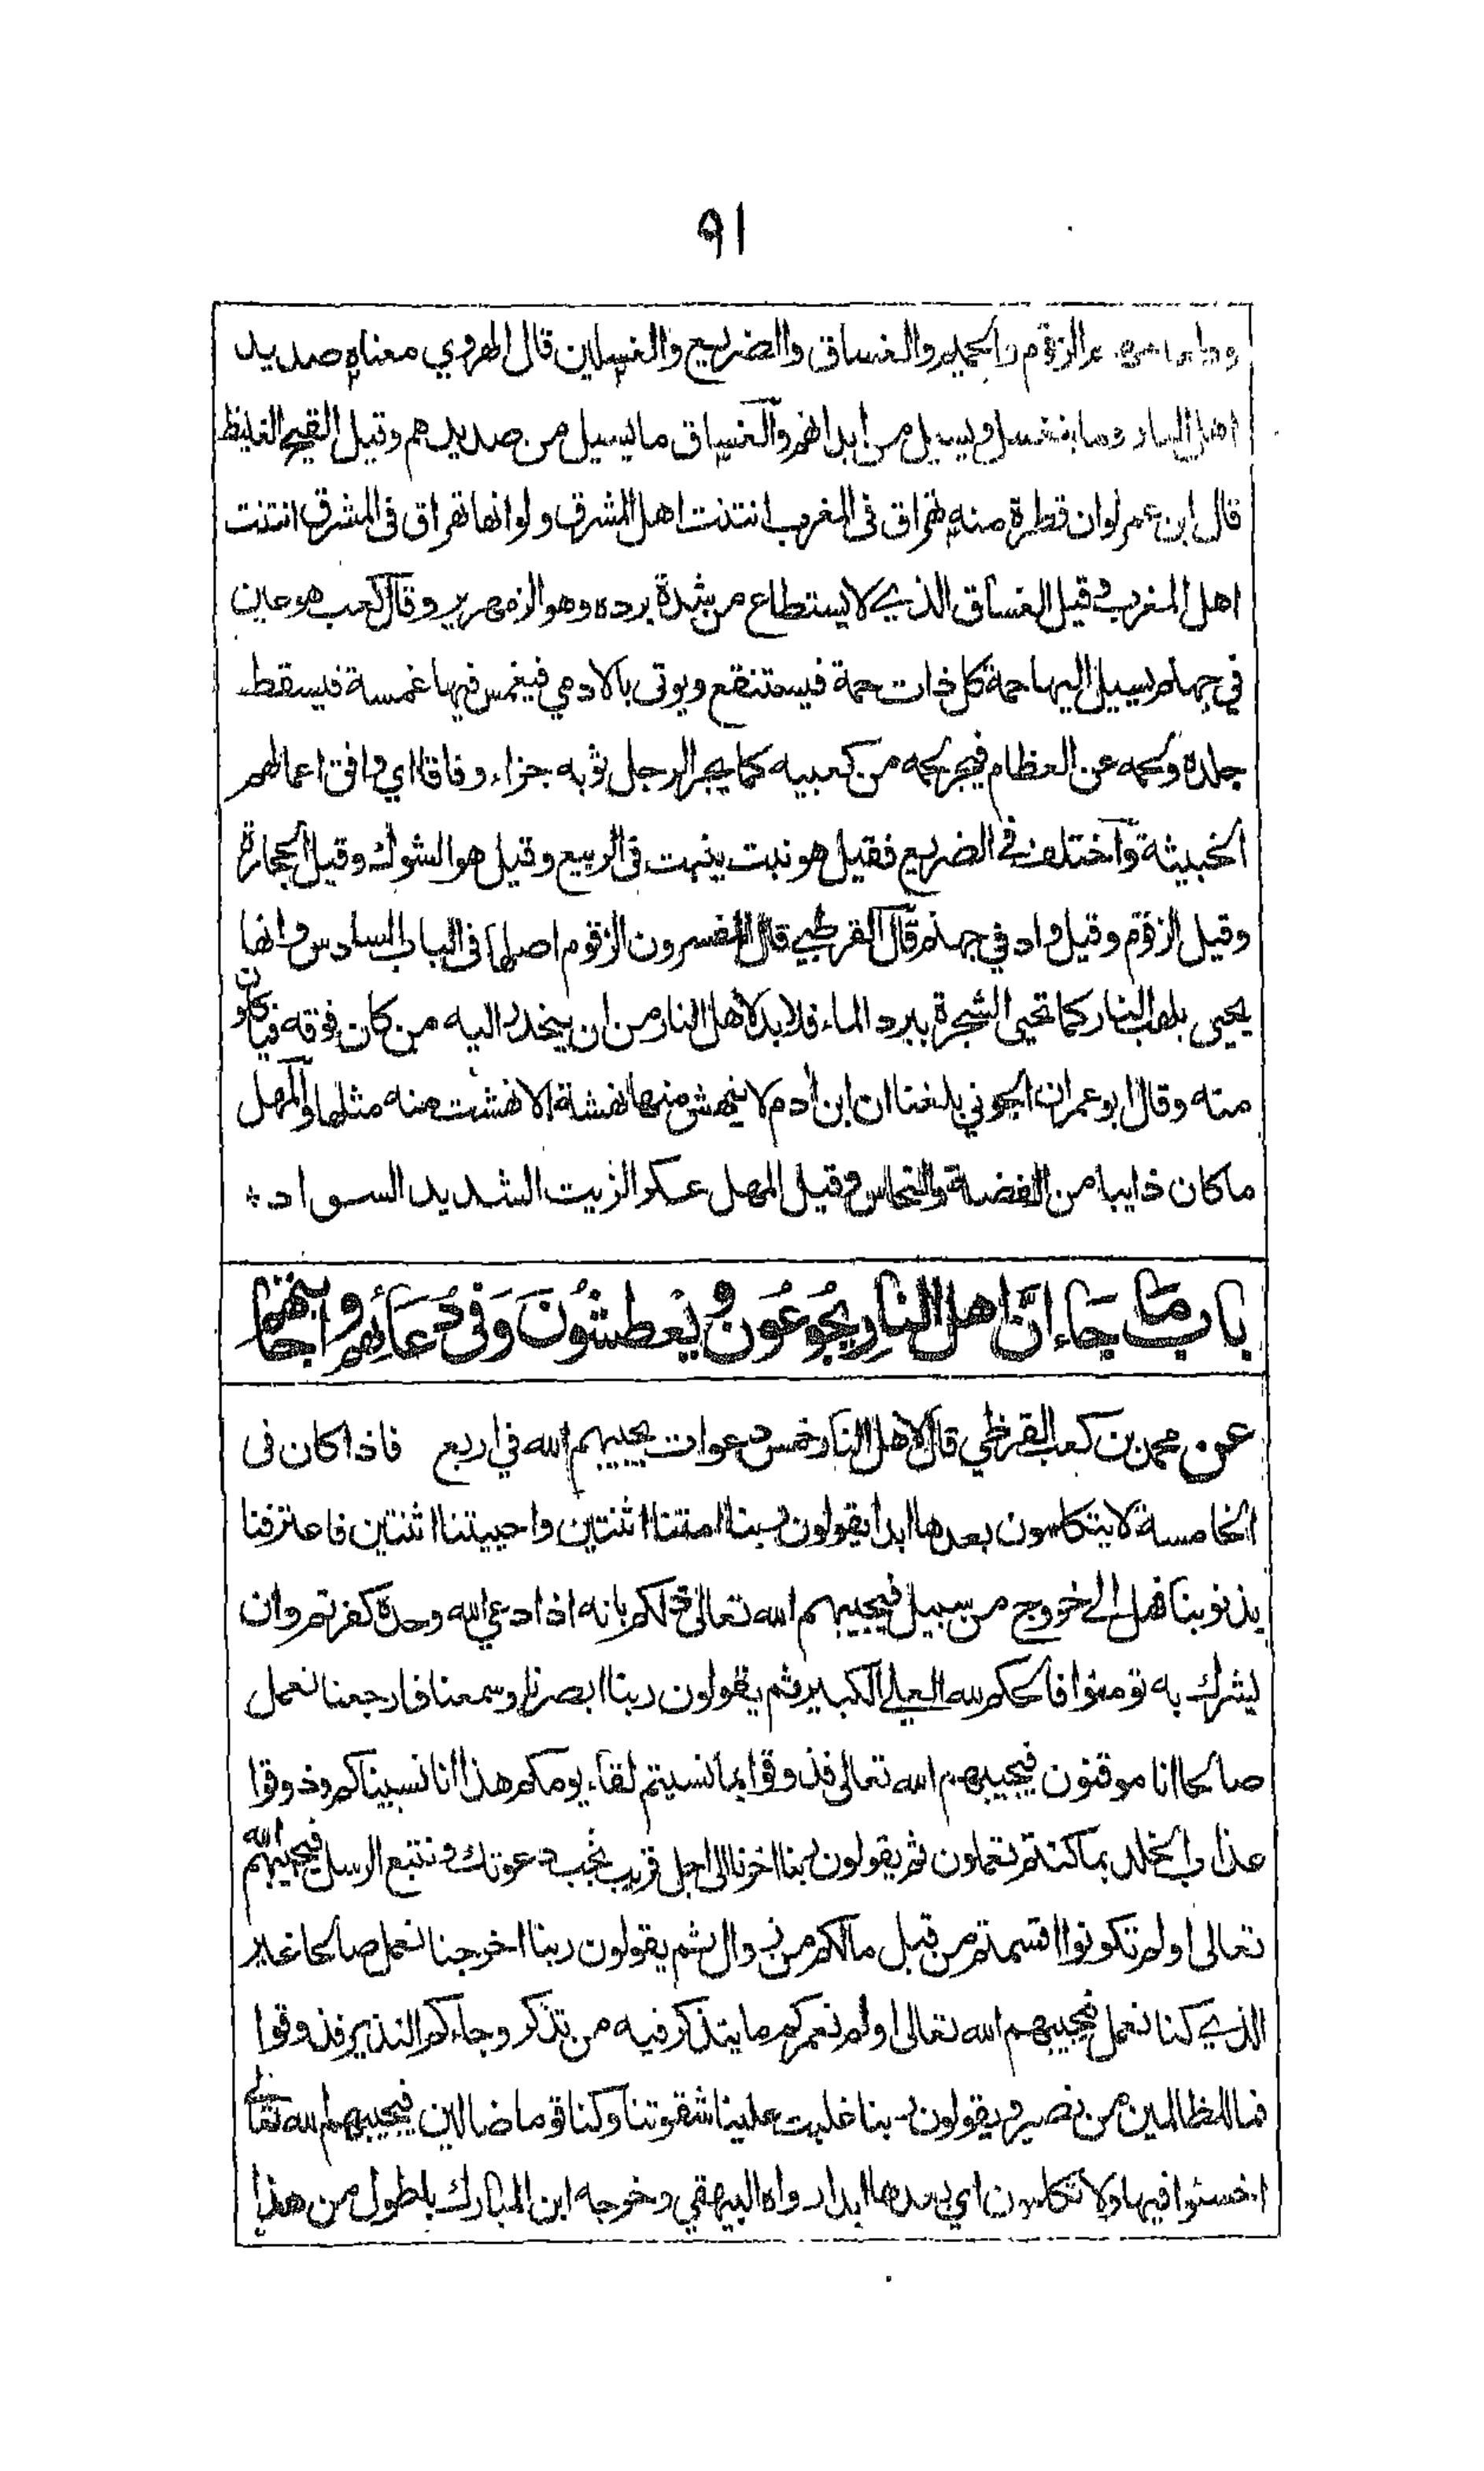 ٩١
الزقوم والحميم والغساق والضريع والغسلين قال الهروي معناه صديد
اهل النار وما ينغسل ويسيل من ابدانهم والغساق ما يسيل من صديدهم وقيل القيح الغليظ
قال ابن عمر لوان قطرة منه تهراق فى المغرب انتنت اهل المشرق ولوانها تهراق فى المشرق انتنت
اهل المغرب وقيل الغساق الذي لا يستطاع من شدة برده وهو الزمهرير وقال كعب هو عين
في جهنم يسيل اليها حمة كل ذات حمة فيستنقع ويوتى بالادمي فيغمس فيها غمسة فيسقط
جلده ولحمه عن العظام فيجر لحمه من كعبيه كما يجر الرجل ثوبه جزاء وفاقا اي وافق اعمالهم
الخبيثة واختلف في الضريع فقيل هو نبت ينبت فى الربيع وقيل هو الشوك وقيل الحجارة
وقيل الزقوم وقيل واد في جهنم قال القرطبي قال المفسرون الزقوم اصلها فى الباب السادس وانها
يحيى بلهب النار كما تحيى الشجرة ببرد الماء فلا بد لاهل النار من ان ينحدر اليه من كان فوقه فياكلون
منه وقال ابو عمران الجوني بلغنا ان ابن ادم لا ينهش منها نهشة الا نهشت منه مثلها والمهل
ما كان ذايبا من الفضة والنحاس وقيل المهل عكر الزيت الشديد السواد *
باب مَا جَاء انَّ اهل النارِ يجُوعُون ويَعطشُونَ وَفى دُعَائِهم واجابتهم
عن محمد بن كعب القرظي قال لاهل النار خمس دعوات يجيبهم الله في اربع فاذا كان فى
الخامسة لا يتكلمون بعدها ابدا يقولون ربنا امتنا اثنتين واحييتنا اثنتين فاعترفنا
بذنوبنا فهل الى خروج من سبيل فيجيبهم الله تعالى ذلكم بانه اذا دعي الله وحده كفرتم وان
يشرك به تومنوا فالحكم لله العلي الكبير ثم يقولون ربنا ابصرنا وسمعنا فارجعنا نعمل
صالحا انا موقنون فيجيبهم الله تعالى فذوقوا بما نسيتم لقاء يومكم هذا انا نسيناكم وذوقوا
عذاب الخلد بما كنتم تعملون ثم يقولون ربنا اخرنا الى اجل قريب نجب دعوتك ونتبع الرسل فيجيبهم الله
تعالى اولم تكونوا اقسمتم من قبل مالكم من زوال ثم يقولون ربنا اخرجنا نعمل صالحا غير
الذي كنا نعمل فيجيبهم الله تعالى اولم نعمركم ما يتذكر فيه من تذكر وجاءكم النذير فذوقوا
فما للظالمين من نصير ويقولون ربنا غلبت علينا شقوتنا وكنا قوما ضالين فيجيبهم الله تعالى
اخسئوا فيها ولا تكلمون اي بعدها ابدا رواه البيهقي وخرجه ابن المبارك باطول من هذا